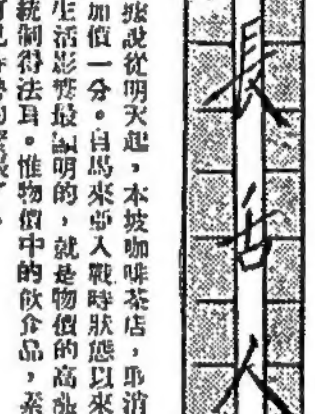 長舌人
據說從明天起，本坡咖啡茶店，取消
加價一分。自馬來亞入戰時狀態以來
生活影響最顯明的，就是物價的高漲
統制得法耳。惟物價中的飲食品，素